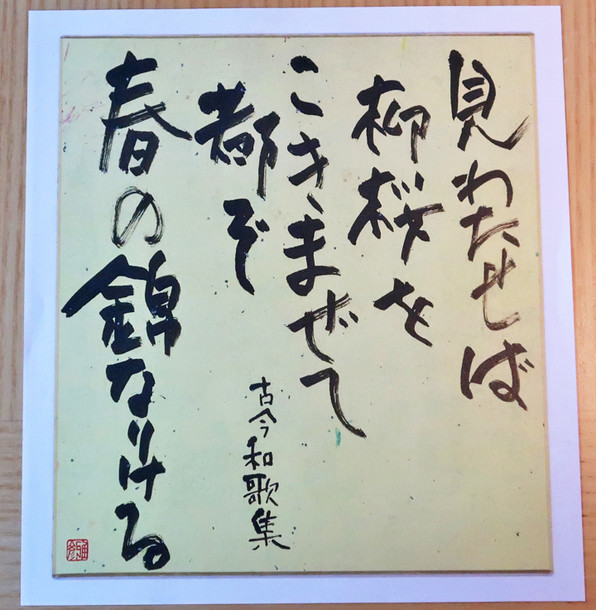 見わたせば
柳桜を
こきまぜて
都ぞ
春の錦なりける
古今和歌集